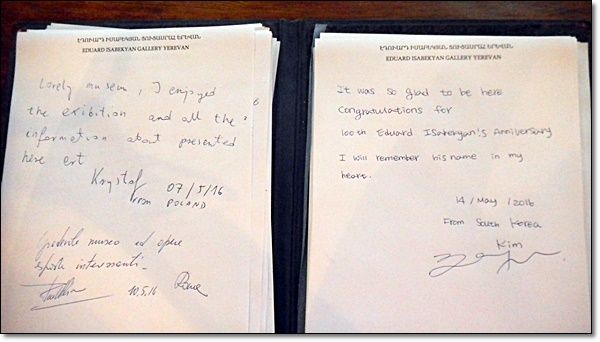 ԷԴՈՒԱՐԴ ԻՍԱԲԵԿՅԱՆ ՑՈՒՑԱՍՐԱՀ ԵՐԵՎԱՆ
EDUARD ISABEKYAN GALLERY YEREVAN
Lovely museum, I enjoyed
the exibition and all the
information about presented
here art
Krystof 07/5/16
from POLAND
museo ed opere
interessanti
10.5.16 Roma
ԷԴՈՒԱՐԴ ԻՍԱԲԵԿՅԱՆ ՑՈՒՑԱՍՐԱՀ ԵՐԵՎԱՆ
EDUARD ISABEKYAN GALLERY YEREVAN
It was so glad to be here
Congratulations for
100th Eduard Isabekyan's Anniversary
I will remember his name in my
heart.
14 / May / 2016
From South Korea
Kim